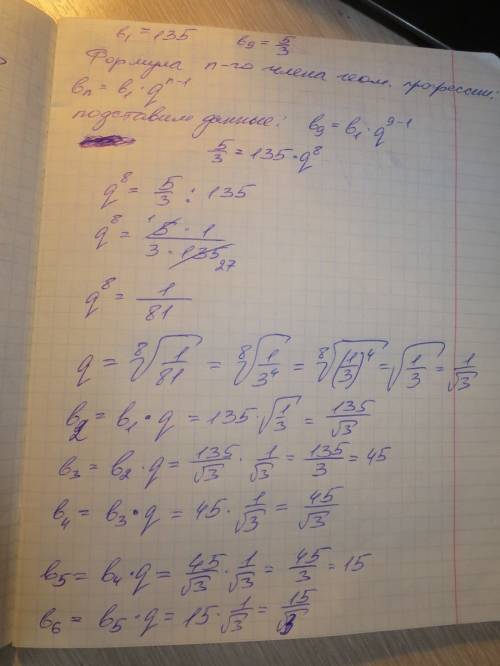 b₁ = 135   b₉ = 5/3
Формула n-го члена геом. прогрессии:
bₙ = b₁ · qⁿ⁻¹
подставим данные: b₉ = b₁ · q⁹⁻¹
5/3 = 135 · q⁸
q⁸ = 5/3 : 135
q⁸ = (5 · 1)/(3 · 135) 1 27
q⁸ = 1/81
q = ⁸√(1/81) = ⁸√(1/3⁴) = ⁸√((1/3)⁴) = √(1/3) = 1/√3
b₂ = b₁ · q = 135 · √(1/3) = 135/√3
b₃ = b₂ · q = 135/√3 · 1/√3 = 135/3 = 45
b₄ = b₃ · q = 45 · 1/√3 = 45/√3
b₅ = b₄ · q = 45/√3 · 1/√3 = 45/3 = 15
b₆ = b₅ · q = 15 · 1/√3 = 15/√3